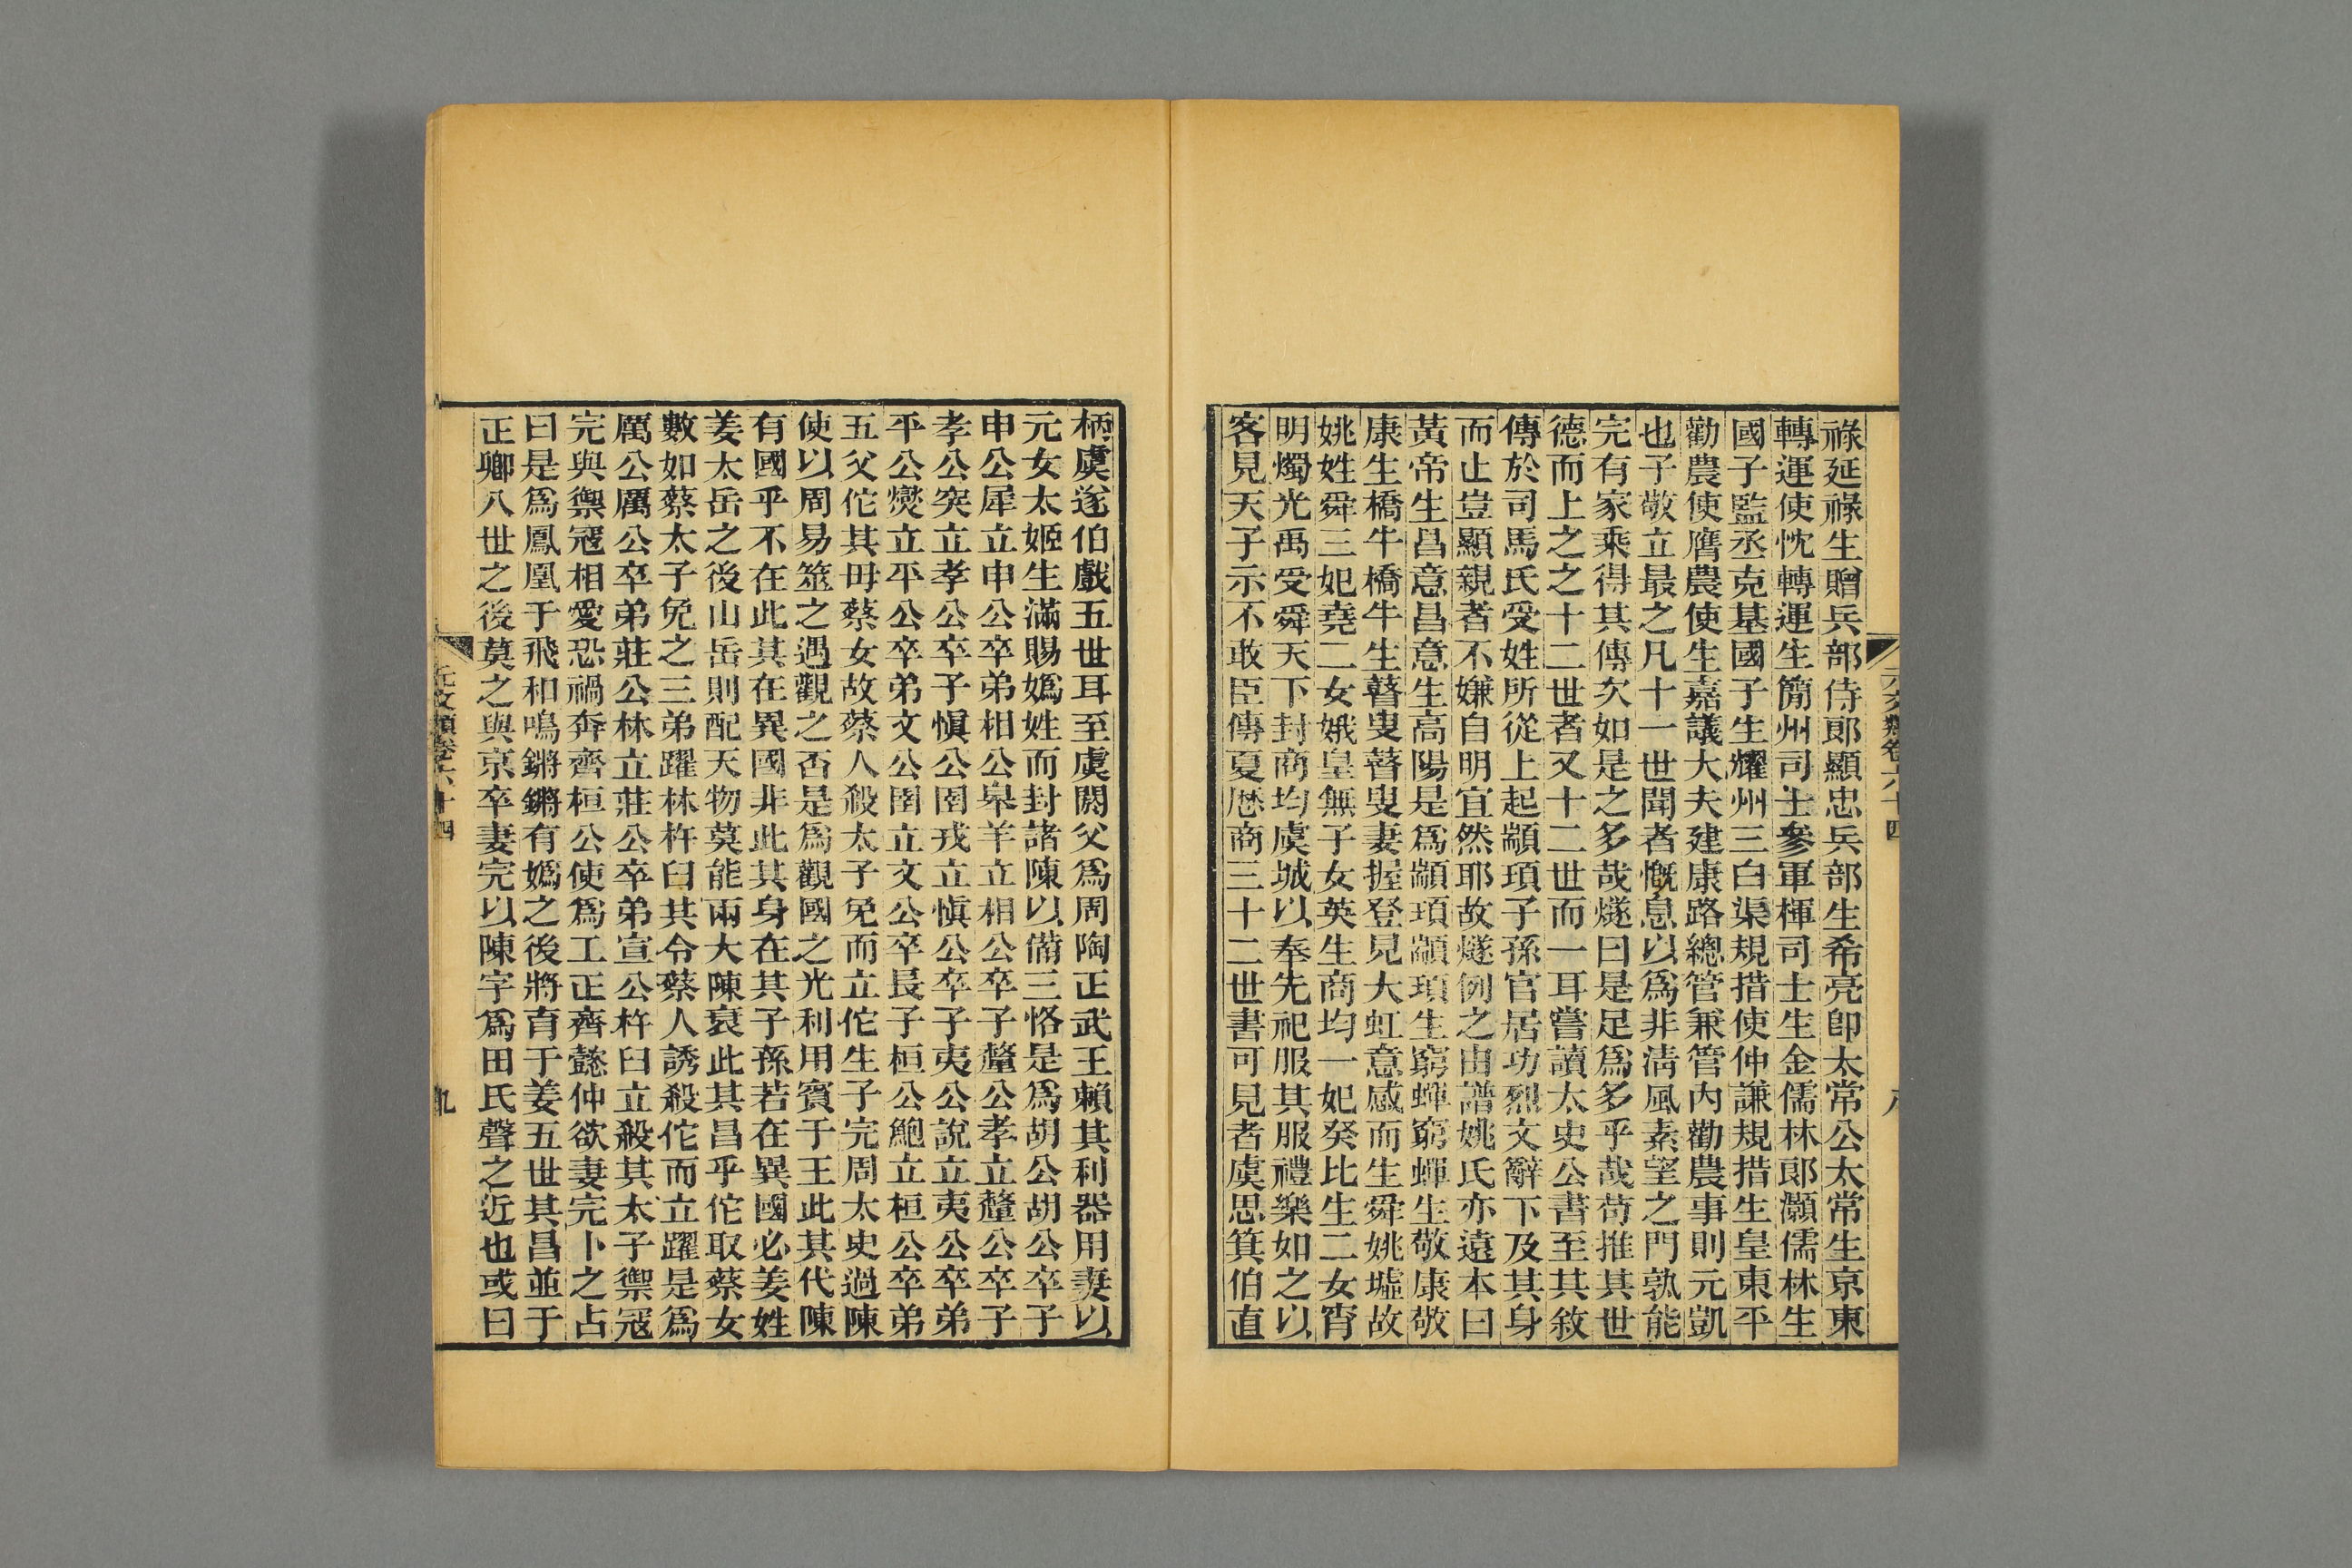 祿延祿生贈兵部侍郎顯忠兵部生希亮卽太常公太常生京東
轉運使忱轉運生簡州司士參軍楎司士生金儒林郎灝儒林生
國子監丞克基國子生耀州三白渠規措使仲謙規措生皇東平
勸農使膺農使生嘉議大夫建康路總管兼管內勸農事則元凱
也子敬立最之凡十一世聞者慨息以爲非淸風素望之門孰能
完有家乘得其傳次如是之多哉燧曰是足爲多乎哉苟推其世
德而上之之十二世者又十二世而一耳嘗讀太史公書至其敘
傳於司馬氏受姓所從上起顓頊子孫官居功烈文辭下及其身
而止豈顯親者不嫌自明宜然耶故燧例之由譜姚氏亦遠本曰
黃帝生昌意昌意生高陽是爲顓頊顓頊生窮蟬窮蟬生敬康敬
康生橋牛橋牛生瞽叟瞽叟妻握登見大虹意感而生舜姚墟故
姚姓舜三妃堯二女娥皇無子女英生商均一妃癸比生二女宵
明燭光禹受舜天下封商均虞城以奉先祀服其服禮樂如之以
客見天子示不敢臣傳夏厯商三十二世書可見者虞思箕伯直
柄虞遂伯戲五世耳至虞閼父爲周陶正武王賴其利器用妻以
元女太姬生滿賜嬀姓而封諸陳以備三恪是爲胡公胡公卒子
申公犀立申公卒弟相公皋羊立相公卒子釐公孝立釐公卒子
孝公突立孝公卒子愼公圉戎立愼公卒子夷公說立夷公卒弟
平公燮立平公卒弟文公圉立文公卒長子桓公鮑立桓公卒弟
五父佗其母蔡女故蔡人殺太子免而立佗生子完周太史過陳
使以周易筮之遇觀之否是爲觀國之光利用賓于王此其代陳
有國乎不在此其在異國非此其身在其子孫若在異國必姜姓
姜太岳之後山岳則配天物莫能兩大陳衰此其昌乎佗取蔡女
數如蔡太子免之三弟躍林杵臼共令蔡人誘殺佗而立躍是爲
厲公厲公卒弟莊公林立莊公卒弟宣公杵臼立殺其太子禦寇
完與禦寇相愛恐禍奔齊桓公使爲工正齊懿仲欲妻完卜之占
曰是爲鳳凰于飛和鳴鏘鏘有嬀之後將育于姜五世其昌並于
正卿八世之後莫之與京卒妻完以陳字爲田氏聲之近也或曰
元文類卷六十四
九